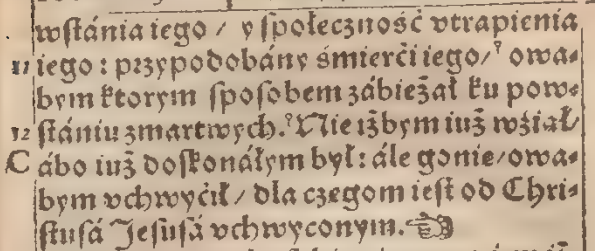 wſtánia iego / y ſpołeczność vtrapienia
11 iego : przypodobány śmierći iego / ⁊ owa⸗
bym ktorym ſpoſobem zábieżał ku pow⸗
12 ſtániu zmartwych. ⁊ Nie iżbym iuż wźiął /
C ábo iuż doſkonáłym był : ále gonię / owa⸗
bym vchwyćił / dla czegom ieſt od Chri⸗
ſtuſá Jeſuſá vchwyconym. ☜